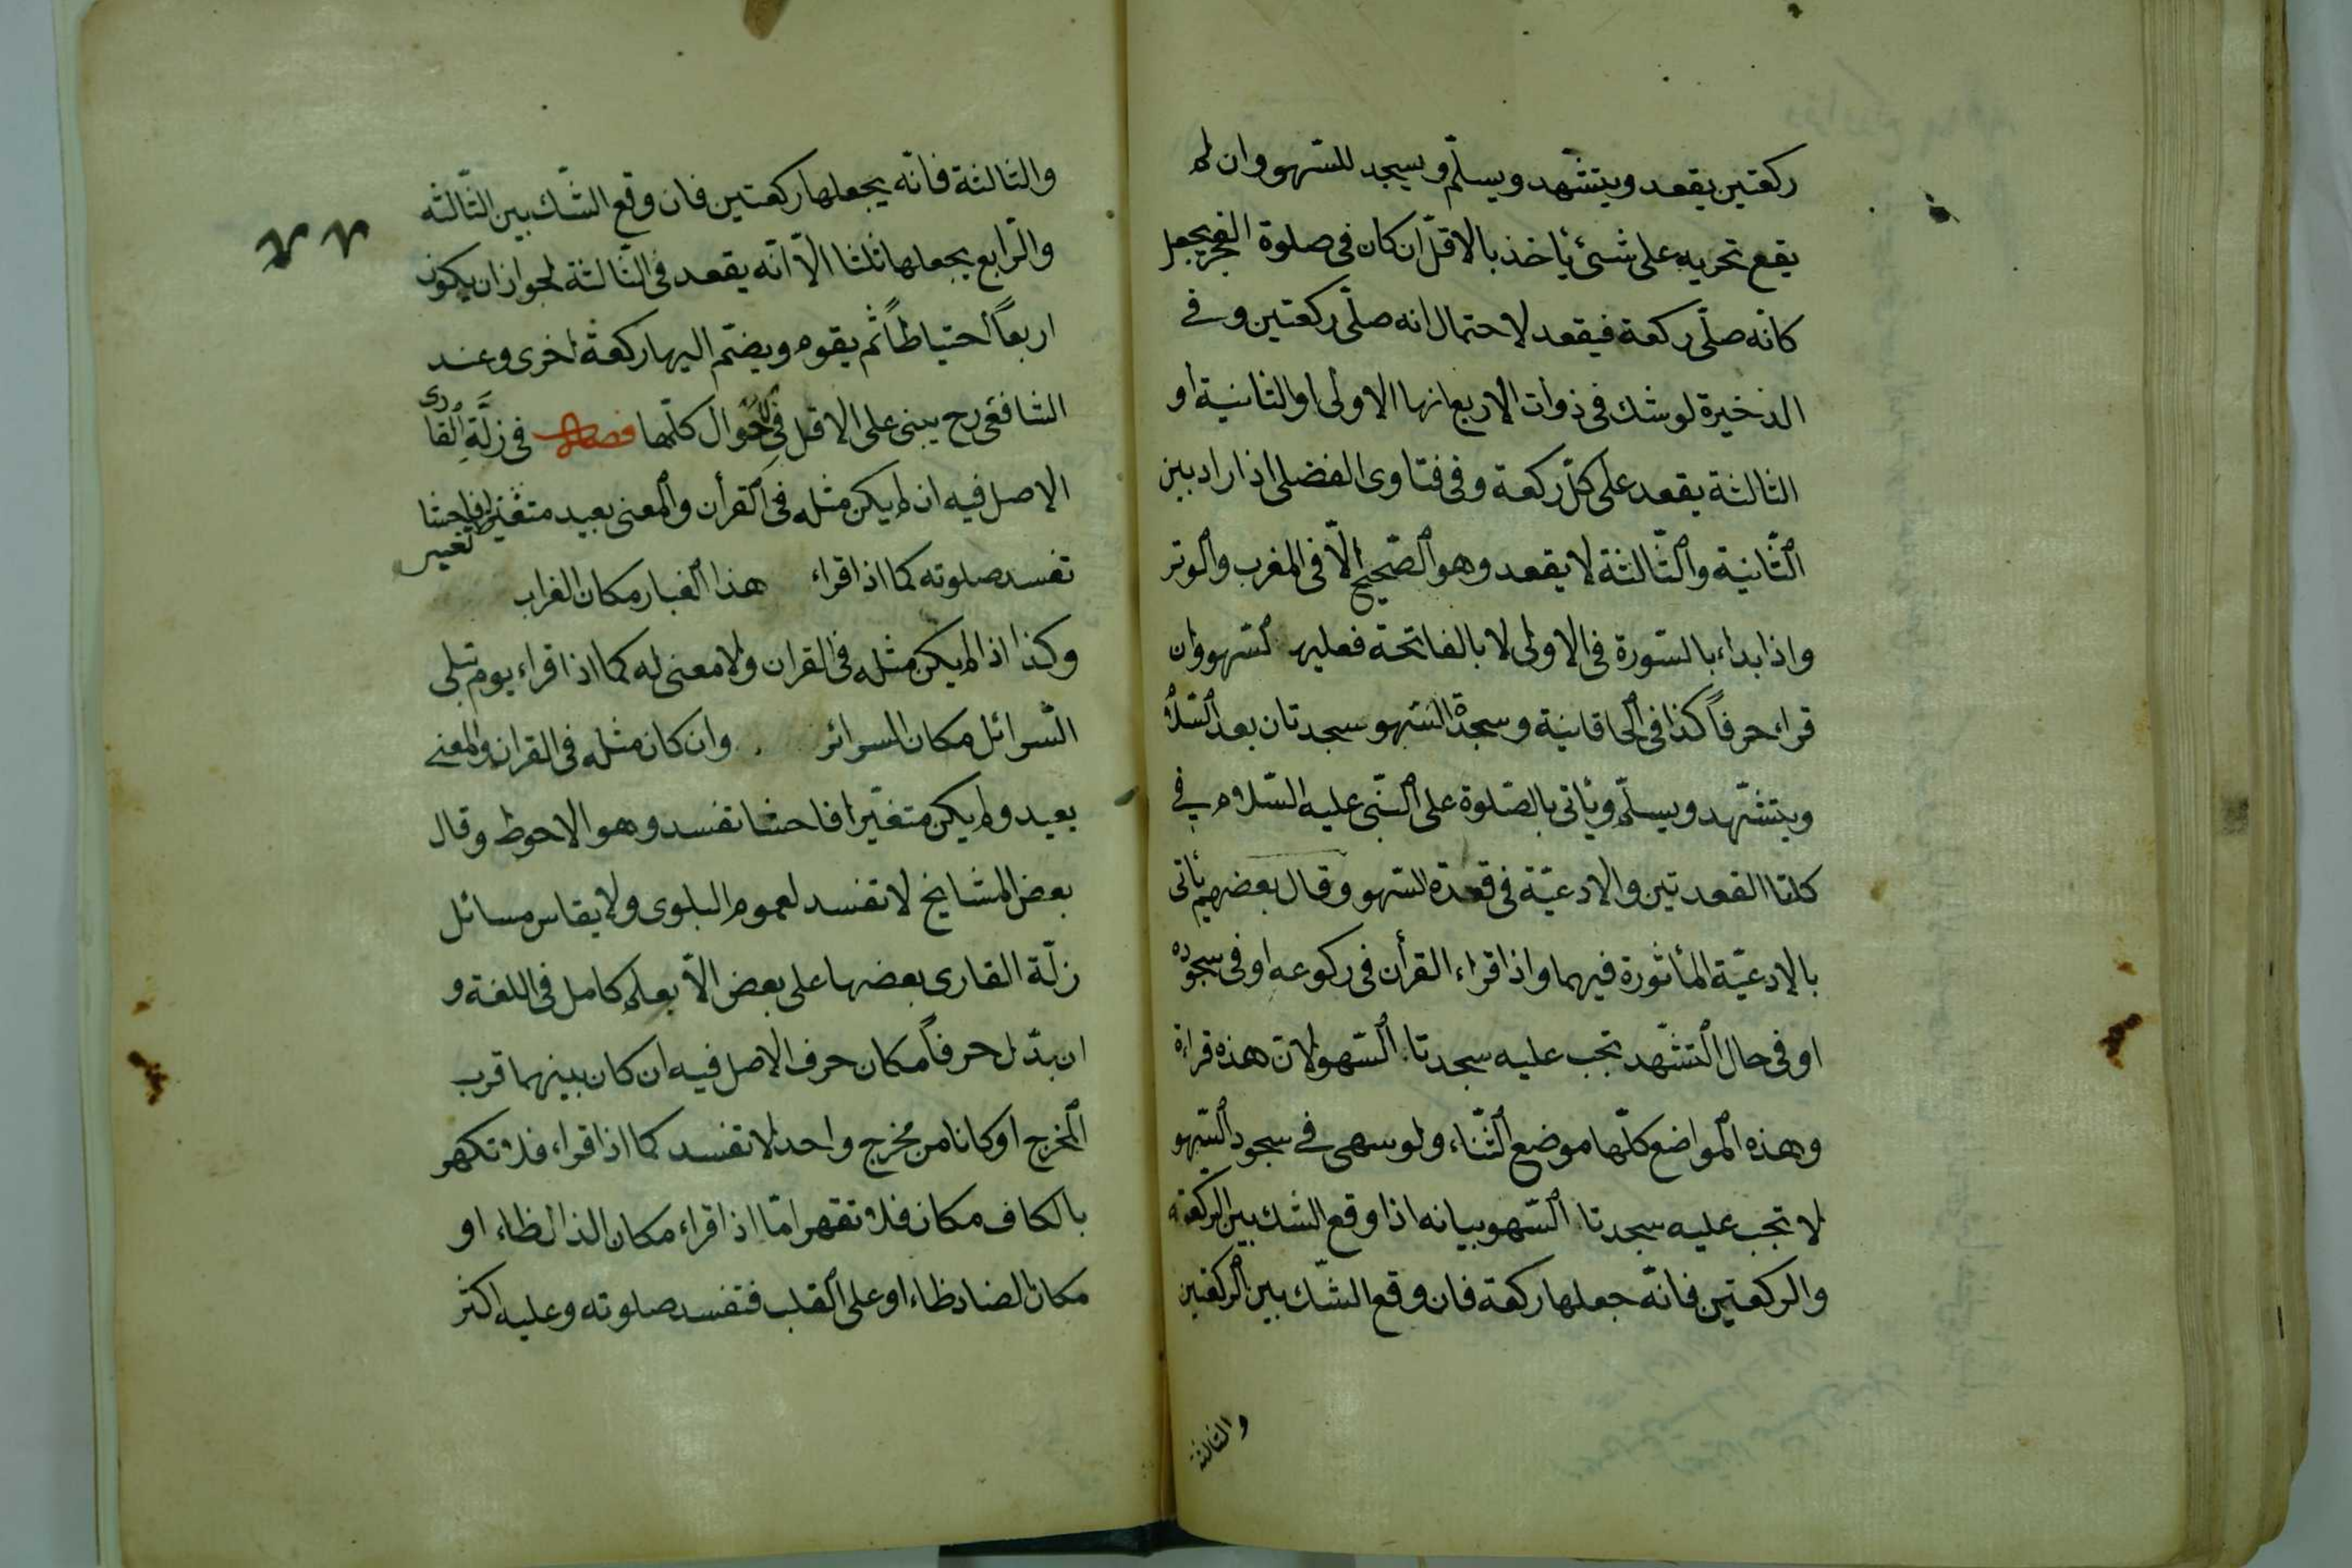 ركعتين يقعد ويتشهد ويسلّم ويسجد للسّهو وان لم
يقع تحريه على شئ يأخذ بالاقلّ ان كان فى صلوة الفجر يجعل
كانّه صلّى ركعة فيقعد لاحتمال انه صلّى ركعتين وفى
الذخيرة لو شك فى ذوات الاربع انها الاولى او الثانية او
الثالثة يقعد على كلّ ركعة وفى فتاوى الفضلى اذا راد بين
الثّانية والثّالثة لا يقعد وهو الصّحيح الّا فى المغرب والوتر
واذا بداء بالسّورة فى الاولى لا بالفاتحة فعليه لسّهو وان
قراء حرفاً كذا فى الخاقانية وسجدة السّهو سجدتان بعد السّلام
ويتشّهد ويسلّم ويأتى بالصّلوة على النّبى عليه السّلام فى
كلتا القعدتين والادعيّة فى قعدة السّهو وقال بعضهم يأتى
بالادعيّة المأثورة فيهما واذا قراء القرأن فى ركوعه او فى سجوده
او فى حال التشّهد تجب عليه سجدتا السّهو لان هذه قراءة
وهذه المواضع كلّها موضع الثّناء ولو سهى فى سجود السّهو
لا تجب عليه سجدتا السّهو بيانه اذا وقع الشك بين الركعة
والركعتين فانّه جعلها ركعة فان وقع الشّك بين الركعتين
والثالثة
والثالثة فانّه يجعلها ركعتين فان وقع الشّك بين الثّالثه
والرّابع يجعلها ثلثا الّا انّه يقعد فى الثّالثة لجواز ان يكون
اربعاً احتياطاً ثم يقوم ويضمّ اليها ركعة اخرى وعند
الشافعى رح يبنى على الاقل فى الاحوال كلّها فصل فى زلّة القارى
الاصل فيه ان لم يكن مثله فى القرأن والمعنى بعيد متغيّر تغييرا فاحشا
تفسد صلوته كما اذا قراء هذا الغبار مكان الغراب
وكذا اذا لم يكن مثله فى القران ولا معنى له كما اذا قراء يوم تبلى
السّرائل مكان السرائر وان كان مثله فى القران والمعنى
بعيد ولم يكن متغيّرا فاحشا تفسد وهو الاحوط وقال
بعض المشايخ لا تفسد لعموم البلوى ولا يقاس مسائل
زلّة القارى بعضها على بعض الّا بعلم كامل فى اللغة و
ان بدّل حرفاً مكان حرف الاصل فيه ان كان بينهما قرب
المخرج او كانا من مخرج واحد لا تفسد كما اذا قراء فلا تكهر
بالكاف مكان فلا تقهر امّا اذا قراء مكان الذال ظاء او
مكان الضاد ظاء او على القلب فتفسد صلوته وعليه اكثر